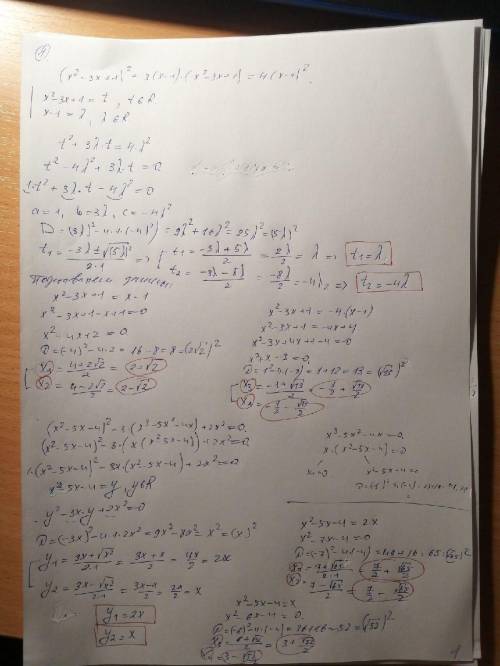 (x²-3x+1)²+3(x-1)·(x²-3x+1)=4(x-1)².
x²-3x+1=t, t∈R
x-1=λ, λ∈R
t²+3λt=4λ²
t²-4λ²+3λt=0
1·t²+3λ·t-4λ²=0
a=1, b=3λ, c=-4λ²
D=(3λ)²-4·1·(-4λ²)=9λ²+16λ²=25λ²=(5λ)²
t₁=-3λ±√(5λ)²/2·1 => t₁=-3λ+5λ/2=2λ/2=λ => t₁=λ
t₂=-3λ-5λ/2=-8λ/2=-4λ => t₂=-4λ
x²-3x+1=x-1
x²-3x+1-x+1=0
x²-4x+2=0
D=(-4)²-4·2=16-8=8=(2√2)²
x₁=4+2√2/2=2+√2
x₂=4-2√2/2=2-√2
x²-3x+1=-4·(x-1)
x²-3x+1=-4x+4
x²-3x+4x+1-4=0
x²+x-3=0
D=1²-4·(-3)=1+12=13=(√13)²
x₃=-1+√13/2=-1/2+√13/2
x₄=-1/2-√13/2
(x²-5x-4)²-3·(x³-5x²-4x)+2x²=0
(x²-5x-4)²-3·(x(x²-5x-4))+2x²=0
1·(x²-5x-4)²-3x·(x²-5x-4)+2x²=0
x²-5x-4=y, y∈R
y²-3x·y+2x²=0
D=(-3x)²-4·1·2x²=9x²-8x²=x²=(x)²
y₁=3x+√x²/2·1=3x+x/2=4x/2=2x
y₂=3x-√x²/2·1=3x-x/2=2x/2=x
y₁=2x
y₂=x
x³-5x²-4x=0
x·(x²-5x-4)=0
x=0 x²-5x-4=0
x²-5x-4=2x
x²-7x-4=0
D=(-7)²-4·(-4)=49+16=65=(√65)²
x₁=7+√65/2·1=7/2+√65/2
x₂=7-√65/2=7/2-√65/2
x²-5x-4=x
x²-6x-4=0
D=(-6)²-4·(-4)=36+16=52=(√52)²
x₃=6+√52/2=3+√52/2
x₄=3-√52/2